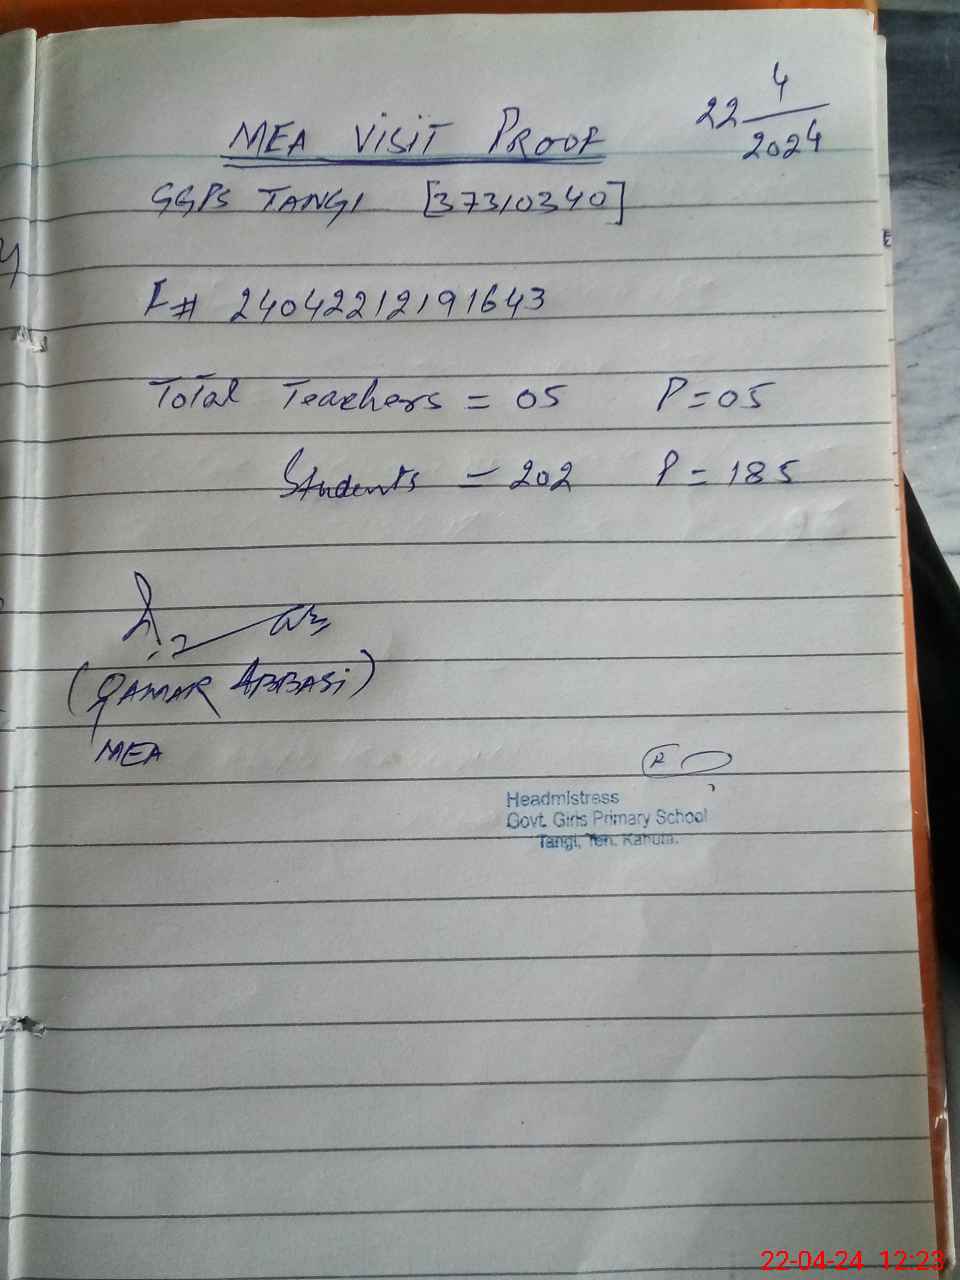 22 4/2024
MEA VISIT PROOF
GGPS TANGI [37310340]
F# 24042212191643
Total Teachers = 05 P=05
Students = 202 P=185
(QAMAR ABBASI)
MEA
Headmistress
Govt. Girls Primary School
Tangi, Teh. Kahuta.
22-04-24 12:23